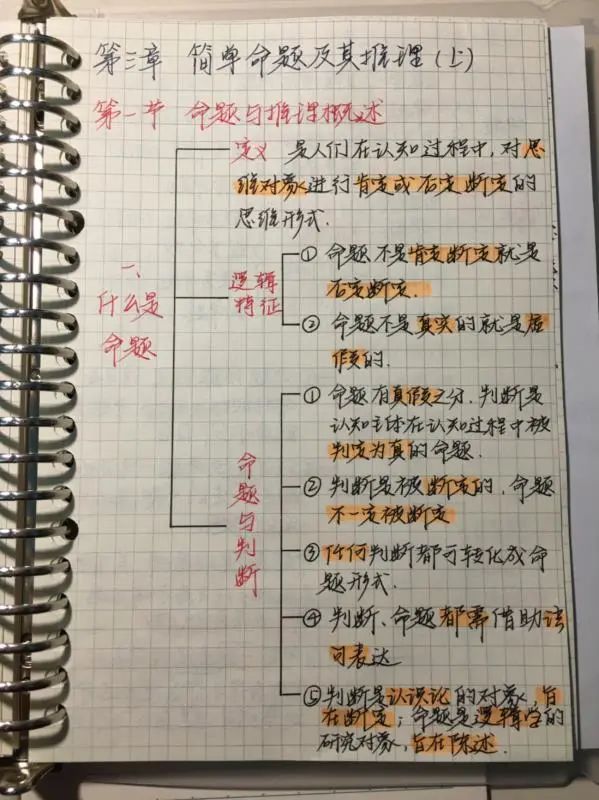 第三章 简单命题及其推理(上)
第一节 命题与推理概述
一、
什么是
命题
定义 是人们在认知过程中,对思
维对象进行肯定或否定断定的
思维形式.
逻辑
特征
① 命题不是肯定断定就是
否定断定.
② 命题不是真实的就是虚
假的.
命
题
与
判
断
① 命题有真假之分.判断是
认知主体在认知过程中被
判定为真的命题.
② 判断是被断定的,命题
不一定被断定
③ 任何判断都可转化成命
题形式.
④ 判断、命题都需借助语
句表达
⑤ 判断是认识论的对象,旨
在断定;命题是逻辑学的
研究对象,旨在陈述.